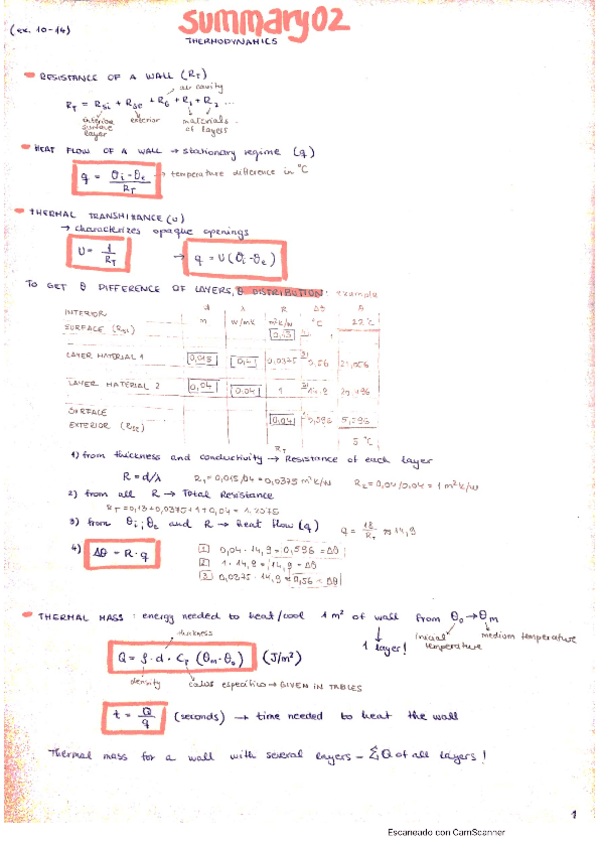 summary02
(ex. 10-14)
THERMODYNAMICS
RESISTANCE OF A WALL (RT)
air cavity
RT = Rsi + Rse + RG + R1 + R2 ...
interior surface layer
exterior
materials of layers
HEAT FLOW OF A WALL → stationary regime (q)
q = θi-θe / RT → temperature difference in °C
THERMAL TRANSMITANCE (U)
→ characterizes opaque openings
U = 1/RT → q = U(θi-θe)
TO GET θ DIFFERENCE OF LAYERS, θ DISTRIBUTION: example
INTERIOR d λ R Δθ θ
SURFACE (Rsi) m w/mk m²k/w °C 22°C
0,13
LAYER MATERIAL 1 0,015 0,4 0,0375 0,56
LAYER MATERIAL 2 0,04 0,04 1 14.9
SURFACE
EXTERIOR (Rse) 0,04 0,596 5,596
RT 5°C
1) from thickness and conductivity → Resistance of each layer
R = d/λ R1 = 0,015/04 = 0,0375 m²k/w R2 = 0,04/0,04 = 1 m²k/w
2) from all R → Total Resistance
RT = 0,13+0,0375+1+0,04 = 1,2075
3) from θi, θe and R → heat flow (q) q = 18/RT ≈ 14,9
4) Δθ = R · q
1 0,04 · 14,9 = 0,596 = Δθ
2 1 · 14,9 = 14,9 = Δθ
3 0,0375 · 14,9 = 0,56 = Δθ
THERMAL MASS : energy needed to heat/cool 1 m² of wall from θo → θm
1 layer!
inicial temperature
medium temperature
thickness
Q = ρ · d · Cp (θm-θo) (J/m²)
density
calor específico → GIVEN IN TABLES
t = Q/q (seconds) → time needed to heat the wall
Thermal mass for a wall with several layers - Σ Q of all layers!
1
Escaneado con CamScanner